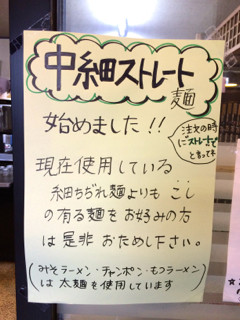 中細ストレート
麺
始めました!!
注文の時
に"ストレートで"
と言ってネ
現在使用している
細ちぢれ麺よりも こし
の有る麺をお好みの方
は是非 おためし下さい。
(みそラーメン・チャンポン・もつラーメン)
は太麺を使用しています